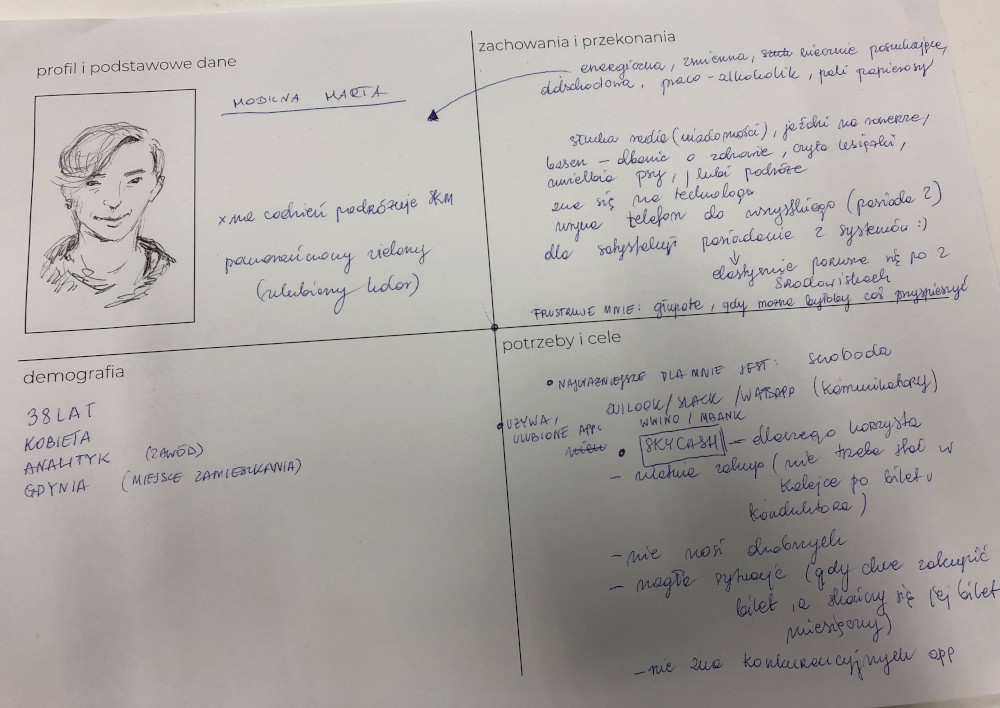 profil i podstawowe dane
MOBILNA MARTA
x na codzień podróżuje SKM
pomarańczowy zielony
(ulubiony kolor)
zachowania i przekonania
energiczna, zmienna, wiecznie poszukująca,
pracoholik, pali papierosy
słucha radia (wiadomości), jeździ na rowerze,
basen – dbanie o zdrowie, czyta książki,
uwielbia psy, lubi podróże
zna się na technologii
używa telefon do wszystkiego (posiada 2)
dla satysfakcji posiadanie 2 systemów :)
elastycznie porusza się po 2
środowiskach
FRUSTRUJE MNIE: głupota, gdy można byłoby coś przyspieszyć
demografia
38 LAT
KOBIETA
ANALITYK (ZAWÓD)
GDYNIA (MIEJSCE ZAMIESZKANIA)
potrzeby i cele
• NAJWAŻNIEJSZE DLA MNIE JEST: swoboda
• UŻYWA, OUTLOOK/SLACK/WATSAPP (komunikatory)
ULUBIONE APP: VIVINO / MBANK
• SKYCASH – dlaczego korzysta
– ułatwia zakup (nie trzeba stać w
kolejce po bilet u
konduktora)
– nie nosi drobnych
– nagłe sytuacje (gdy chce zakupić
bilet, a skończy się jej bilet
miesięczny)
– nie zna konkurencyjnych app